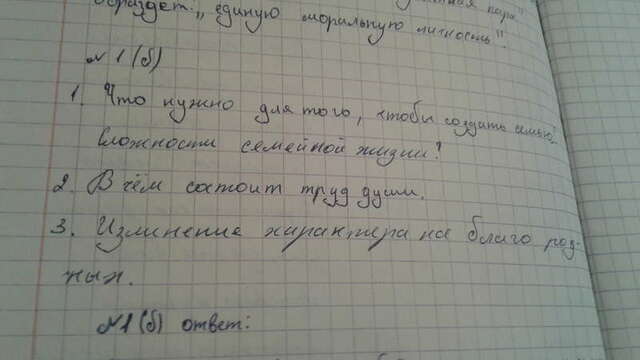 образует: „единую моральную личность".
№ 1 (б)
1. Что нужно для того, чтобы создать семью.
Сложности семейной жизни?
2. В чём состоит труд души.
3. Изминение характера на благо род-
ных.
№1 (б) ответ: